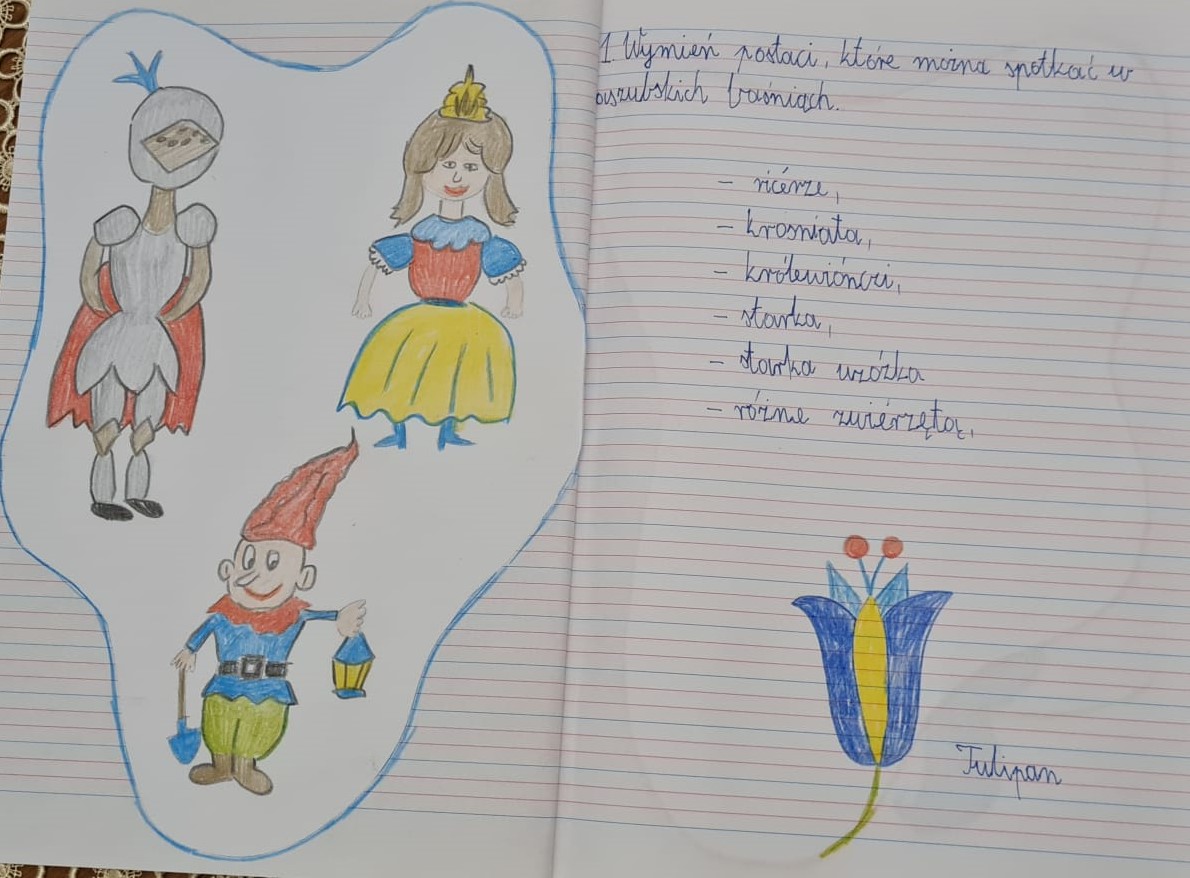 1. Wymień postaci, które można spotkać w
aszubskich baśniach.
- ricérze,
- krosniãta,
- królewiónczi,
- starka,
- starka wróżka
- różne zwiérzęta,
Tulipan